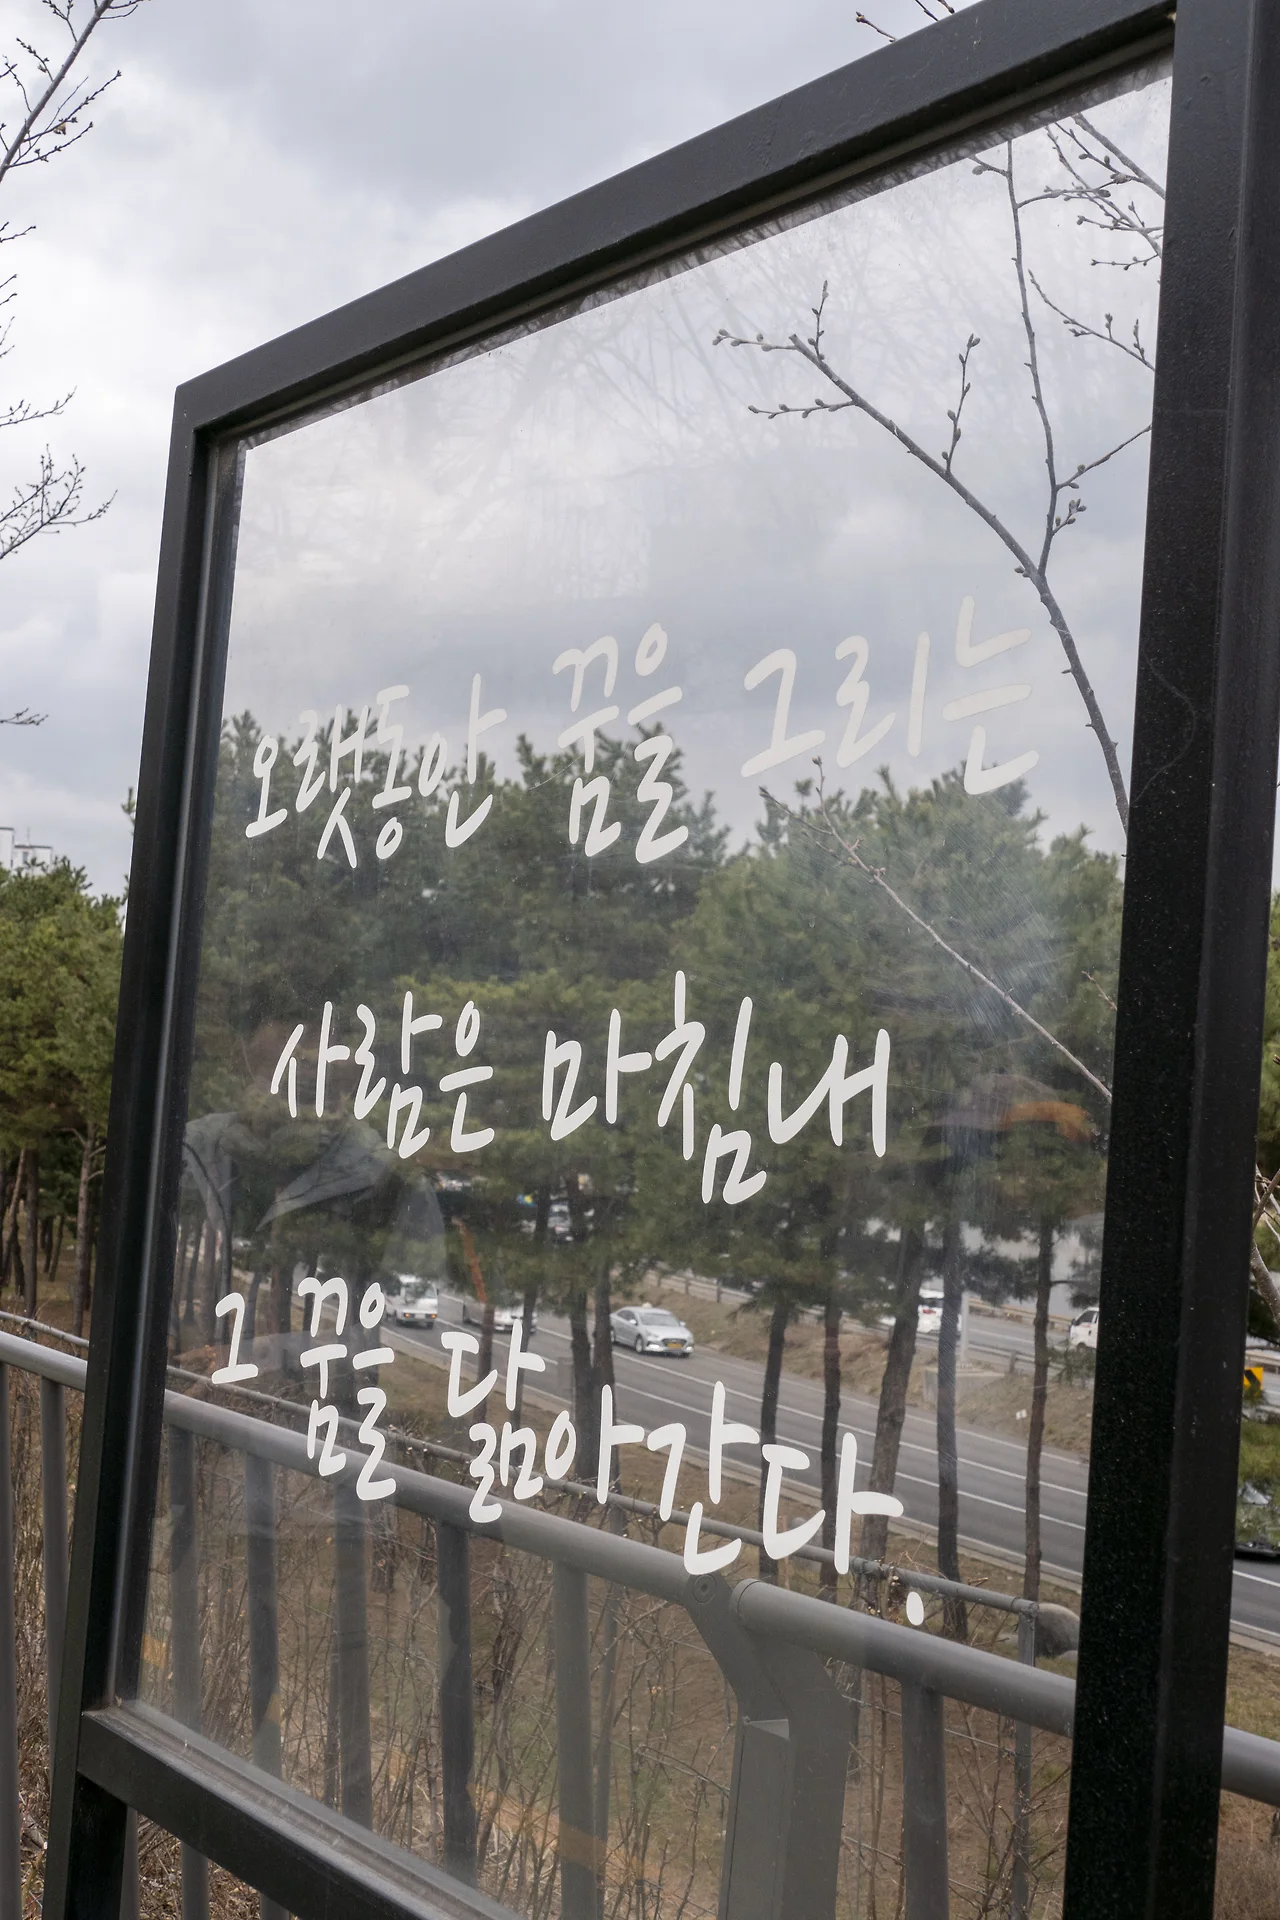 오랫동안 꿈을 그리는
사람은 마침내
그 꿈을 닮아간다.